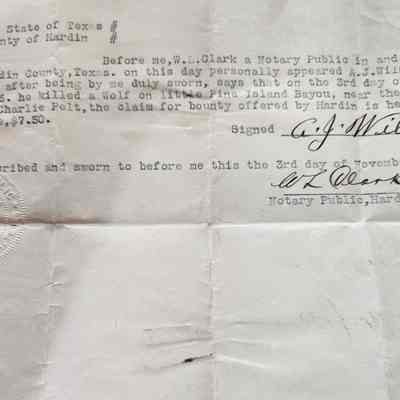 State of Texas #
nty of Hardin #
Before me,W.L.Clark a Notary Public in and
din County,Texas. on this day personally appeared A.J.Wil
after being by me duly sworn, says that on the 3rd day of
. he killed a Wolf on little Pine Island Bayou, near the
Charlie Pelt, the claim for bounty offered by Hardin is he
,$7.50.
Signed A.J. Wil
cribed and sworn to before me this the 3rd day of Novemb
W L Clark
Notary Public,Hard